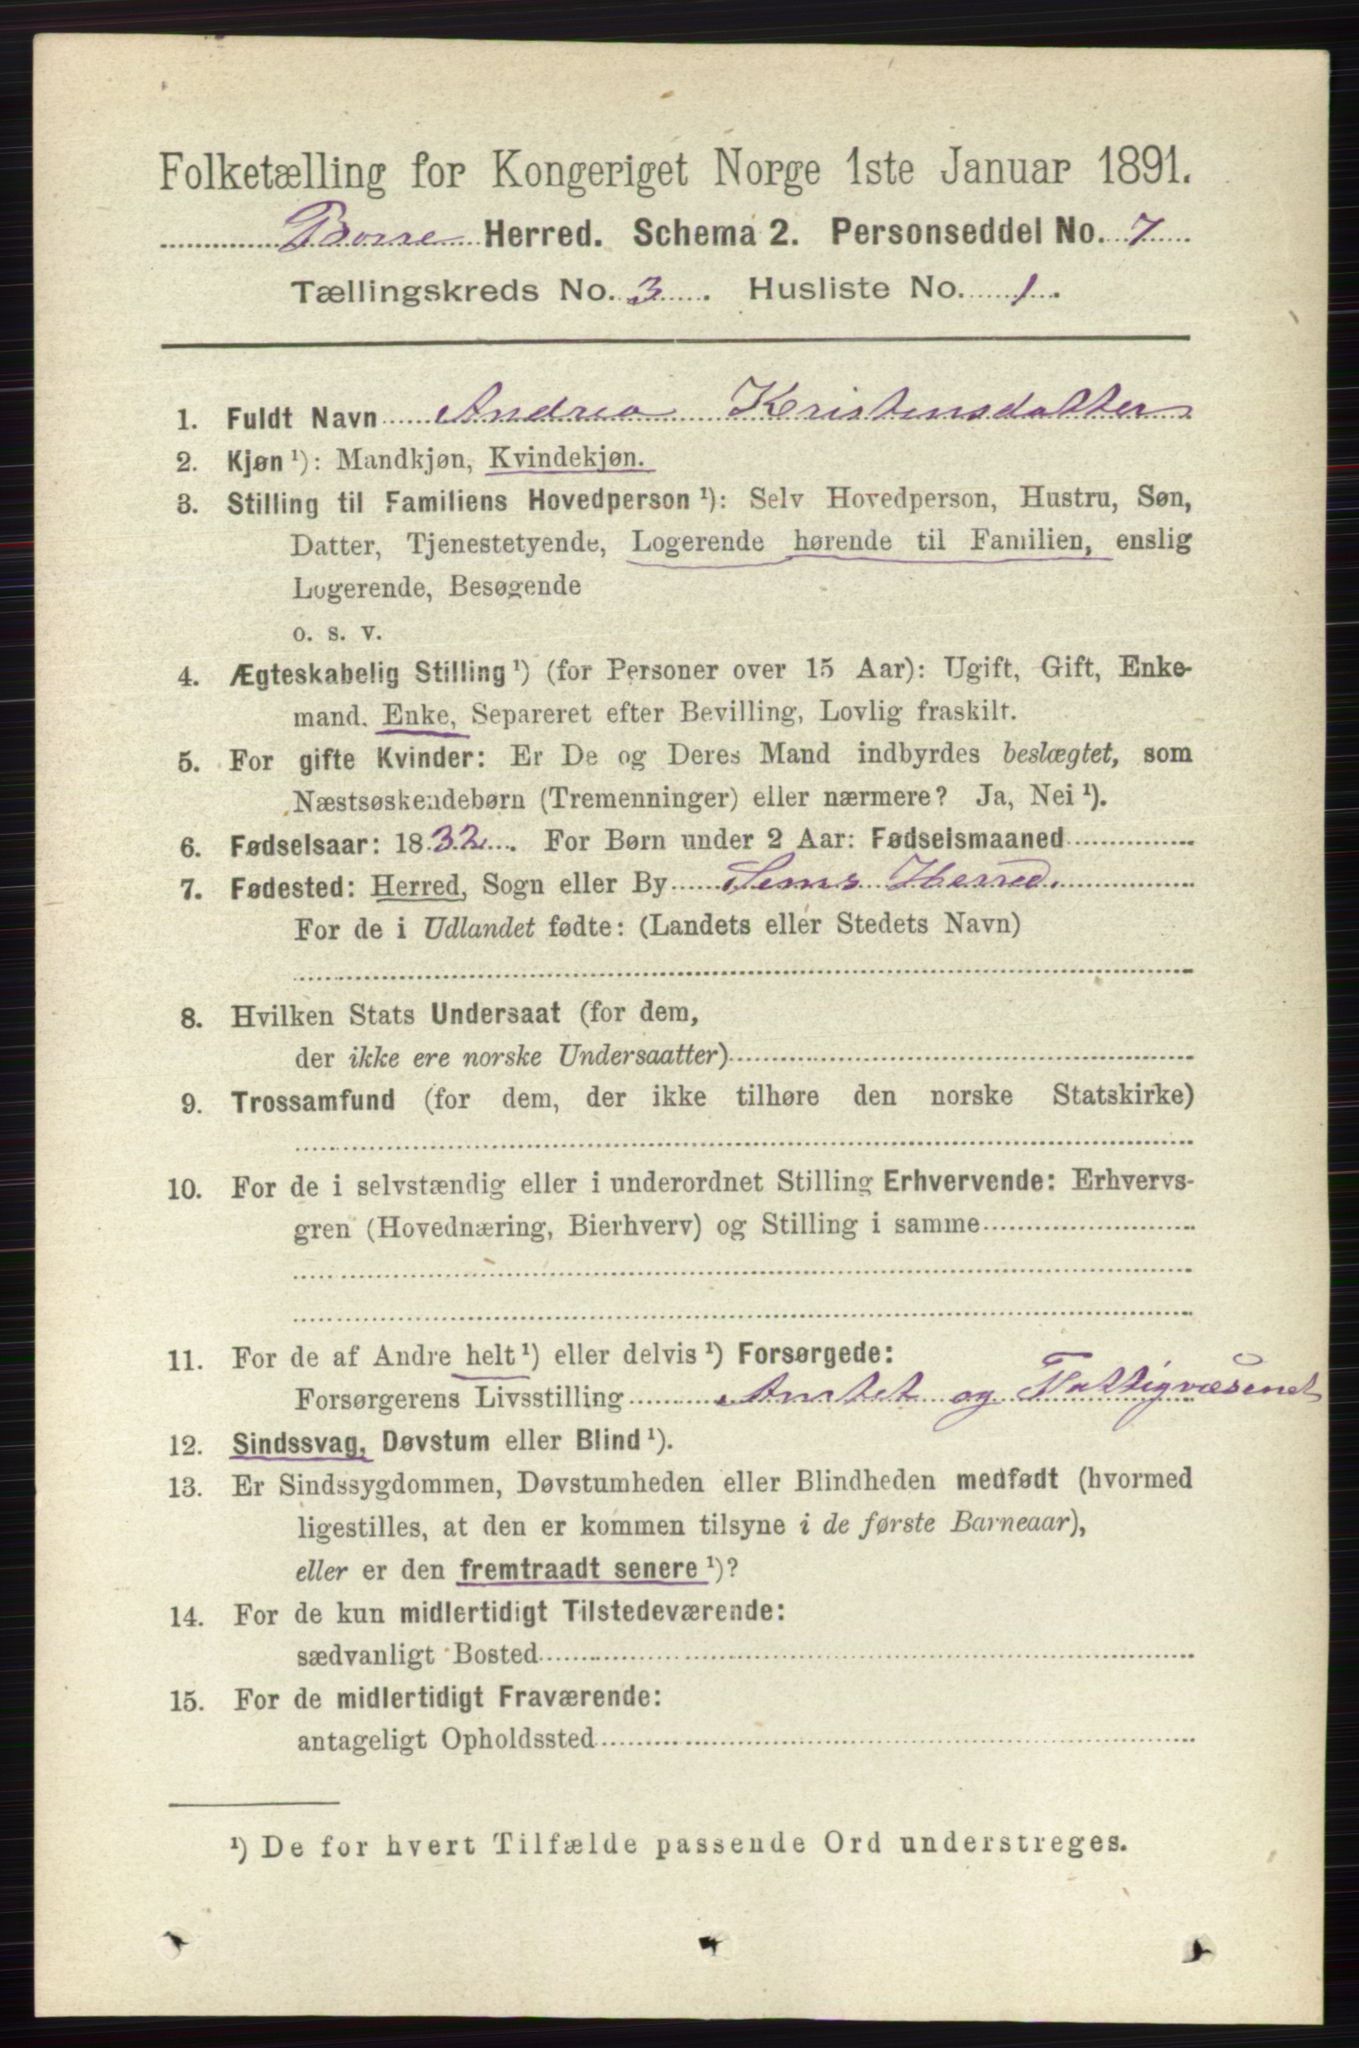 Folketælling for Kongeriget Norge 1ste Januar 1891.
Borre Herred. Schema 2. Personseddel No. 7
Tællingskreds No. 3. Husliste No. 1.
1. Fuldt Navn Andrea Kristensdatter
2. Kjøn ¹): Mandkjøn, Kvindekjøn.
3. Stilling til Familiens Hovedperson ¹): Selv Hovedperson, Hustru, Søn,
Datter, Tjenestetyende, Logerende hørende til Familien, enslig
Logerende, Besøgende
o. s. v.
4. Ægteskabelig Stilling ¹) (for Personer over 15 Aar): Ugift, Gift, Enke-
mand, Enke, Separeret efter Bevilling, Lovlig fraskilt.
5. For gifte Kvinder: Er De og Deres Mand indbyrdes beslægtet, som
Næstsøskendebørn (Tremenninger) eller nærmere? Ja, Nei ¹).
6. Fødselsaar: 1832. For Børn under 2 Aar: Fødselsmaaned
7. Fødested: Herred, Sogn eller By Sems Herred.
For de i Udlandet fødte: (Landets eller Stedets Navn)
8. Hvilken Stats Undersaat (for dem,
der ikke ere norske Undersaatter)
9. Trossamfund (for dem, der ikke tilhøre den norske Statskirke)
10. For de i selvstændig eller i underordnet Stilling Erhvervende: Erhvervs-
gren (Hovednæring, Bierhverv) og Stilling i samme
11. For de af Andre helt ¹) eller delvis ¹) Forsørgede:
Forsørgerens Livsstilling Amtet og Fattigvæsenet
12. Sindssvag, Døvstum eller Blind ¹).
13. Er Sindssygdommen, Døvstumheden eller Blindheden medfødt (hvormed
ligestilles, at den er kommen tilsyne i de første Barneaar),
eller er den fremtraadt senere ¹)?
14. For de kun midlertidigt Tilstedeværende:
sædvanligt Bosted
15. For de midlertidigt Fraværende:
antageligt Opholdssted
¹) De for hvert Tilfælde passende Ord understreges.